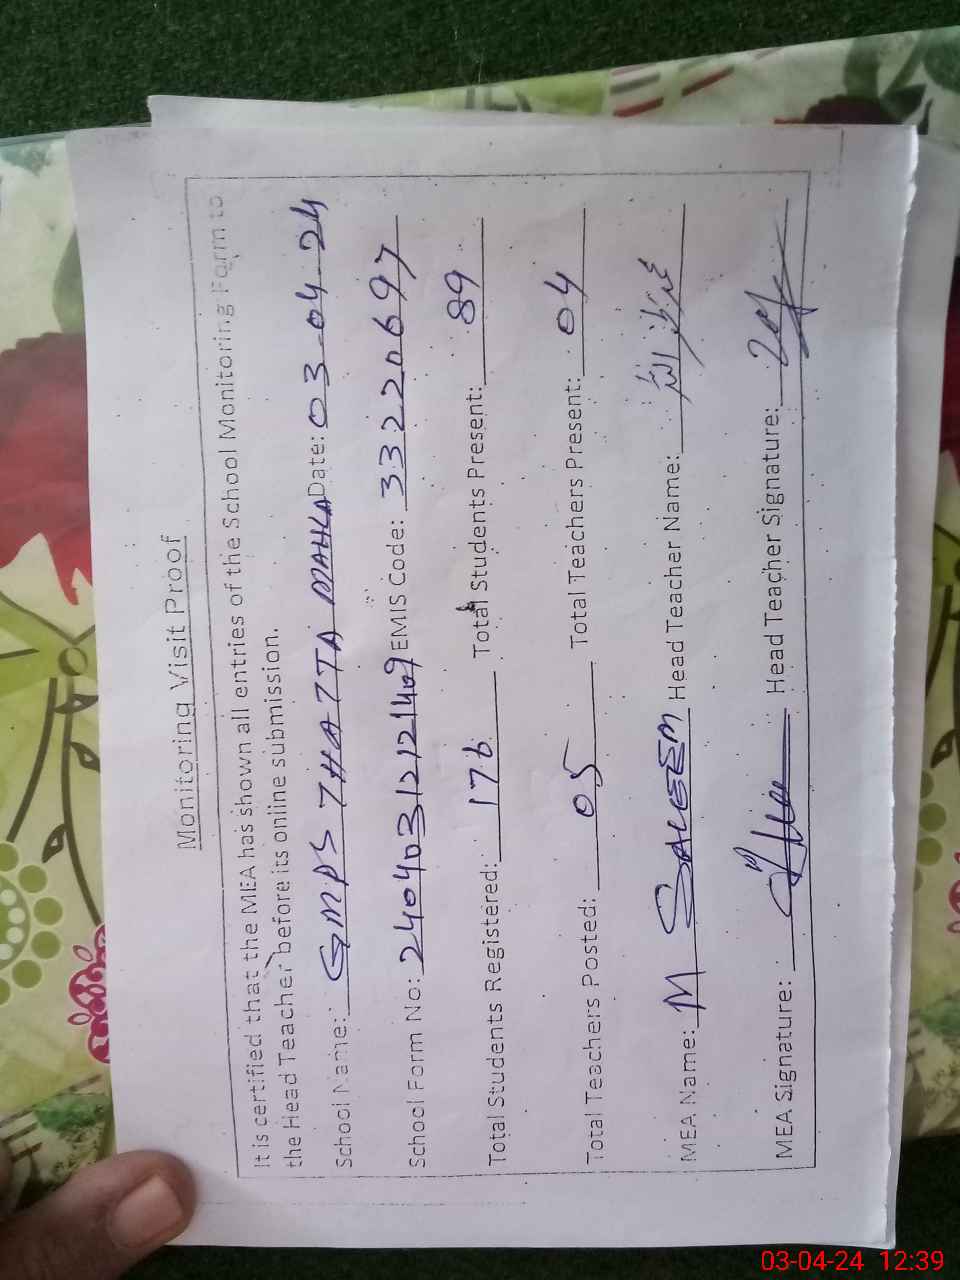 Monitoring Visit Proof
It is certified that the MEA has shown all entries of the School Monitoring Form to
the Head Teacher before its online submission.
School Name: GMPS THATTA MAHLA Date: 03-04-24
School Form No: 24040312121409 EMIS Code: 33220697
Total Students Registered: 176 Total Students Present: 89
Total Teachers Posted: 05 Total Teachers Present: 04
MEA Name: M SALEEM Head Teacher Name:
MEA Signature: Head Teacher Signature:
03-04-24 12:39